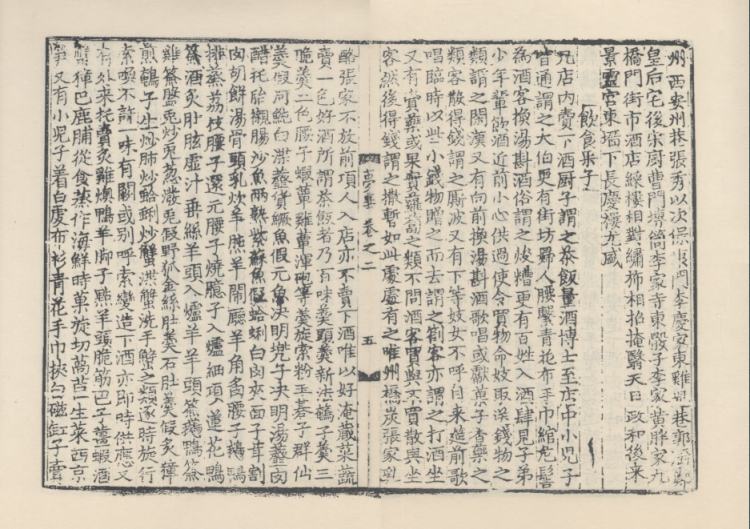 州西安州巷張秀以次保康門李慶家東雞兒巷郭厨鄭
皇后宅後宋厨曹門塼筒李家寺東骰子李家黃胖家九
橋門街市酒店綵樓相對繡旆相招掩翳天日政和後來
景靈宮東墻下長慶樓尤盛
飲食果子
凡店內賣下酒厨子謂之茶飯量酒博士至店中小兒子
皆通謂之大伯更有街坊婦人腰繫青花布手巾綰危髻
為酒客換湯斟酒俗謂之焌糟更有百姓入酒肆見子弟
少年輩飲酒近前小心供過使令買物命妓取送錢物之
類謂之閑漢又有向前換湯斟酒歌唱或獻菓子香藥之
類客散得錢謂之厮波又有下等妓女不呼自來筵前歌
唱臨時以些小錢物贈之而去謂之劄客亦謂之打酒坐
又有賣藥或果實蘿蔔之類不問酒客買與不買散與坐
客然後得錢謂之撒暫如此處處有之唯州橋炭張家乳
夢華 卷之二 五
酪張家不放前項人入店亦不賣下酒唯以好淹藏菜蔬
賣一色好酒所謂茶飯者乃百味羹頭羹新法鵪子羹三
脆羹二色腰子蝦蕈雞蕈渾砲等羹旋索粉玉碁子群仙
羹假河魨白渫虀貨鱖魚假元魚決明兜子決明湯虀肉
醋托胎襯腸沙魚兩熟紫蘇魚假蛤蜊白肉夾面子茸割
肉胡餅湯骨頭乳炊羊羊鬧廳羊角炙腰子鵝鴨
排蒸荔枝腰子還元腰子燒臆子入爐細項蓮花鴨
簽酒炙肚胘虛汁垂絲羊頭入爐羊羊頭簽鵝鴨簽
雞簽盤兔炒兔葱潑兔假野狐金絲肚羹石肚羹假炙獐
煎鵪子生炒肺炒蛤蜊炒蟹渫蟹洗手蟹之類逐時旋行
索喚不許一味有闕或別呼索變造下酒亦即時供應又
有外來托賣炙雞燠鴨羊脚子點羊頭脆筋巴子薑蝦酒
蟹獐巴鹿脯從食蒸作海鮮時菓旋切萵苣生菜西京
筍又有小兒子着白虔布衫青花手巾挾白磁缸子賣